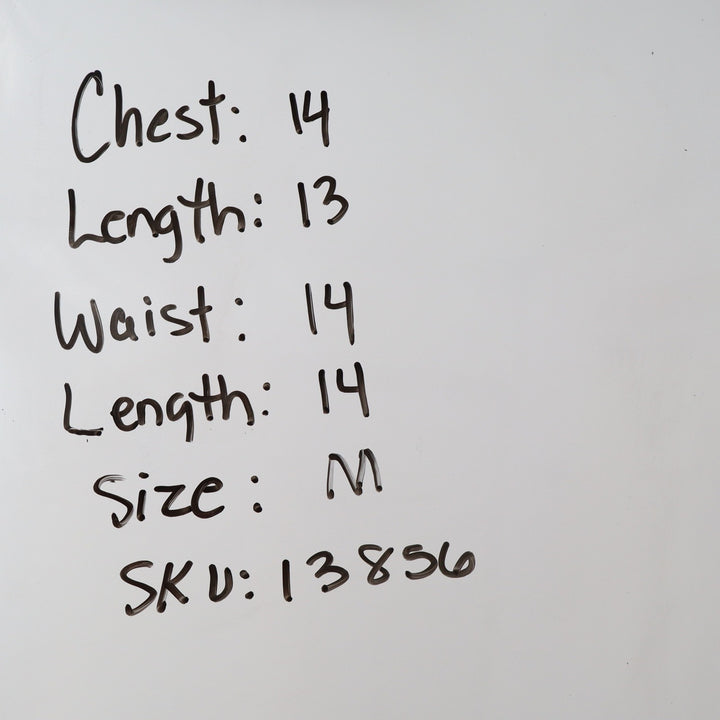 Chest: 14
Length: 13
Waist: 14
Length: 14
Size: M
SKU: 13856